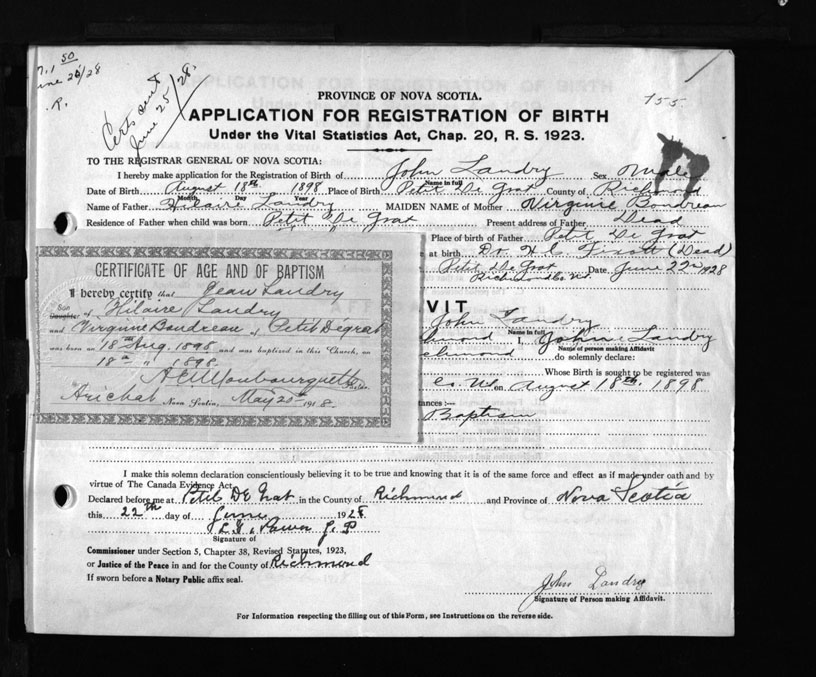 1 50
June 25/28
R.
Certs sent
June 25/28.
155
PROVINCE OF NOVA SCOTIA.
APPLICATION FOR REGISTRATION OF BIRTH
Under the Vital Statistics Act, Chap. 20, R. S. 1923.
TO THE REGISTRAR GENERAL OF NOVA SCOTIA:
I hereby make application for the Registration of Birth of John Landry Sex Male
Name in full
Date of Birth August 18th 1898 Place of Birth Petit De Grat County of Richmond
Month Day Year
Name of Father Hilaire Landry MAIDEN NAME of Mother Virginie Boudreau
Residence of Father when child was born Petit De Grat Present address of Father Dead
Place of birth of Father Petit De Grat
at birth Dr. H. C. (Dead)
Petit De Grat Date June 22nd 1928
Richmond Co. N.S.
CERTIFICATE OF AGE AND OF BAPTISM
I hereby certify that Jean Landry
Son
Daughter of Hilaire Landry
and Virginie Boudreau of Petit Degrat
was born on 18th Aug. 1898 and was baptized in this Church, on
18th " 1898.
A E Mombourquette
Arichat Nova Scotia, May 20th 1918.
VIT
John Landry
Name in full
mond I, John Landry
Name of person making Affidavit
chmond do solemnly declare:
Whose Birth is sought to be registered was
Co. N.S. on August 18th 1898
tances:—
Baptism
I make this solemn declaration conscientiously believing it to be true and knowing that it is of the same force and effect as if made under oath and by
virtue of The Canada Evidence Act.
Declared before me at Petit De Grat in the County of Richmond and Province of Nova Scotia
this 22nd day of June 1928
J. P.
Signature of
Commissioner under Section 5, Chapter 38, Revised Statutes, 1923,
or Justice of the Peace in and for the County of Richmond
If sworn before a Notary Public affix seal.
John Landry
Signature of Person making Affidavit.
For Information respecting the filling out of this Form, see Instructions on the reverse side.